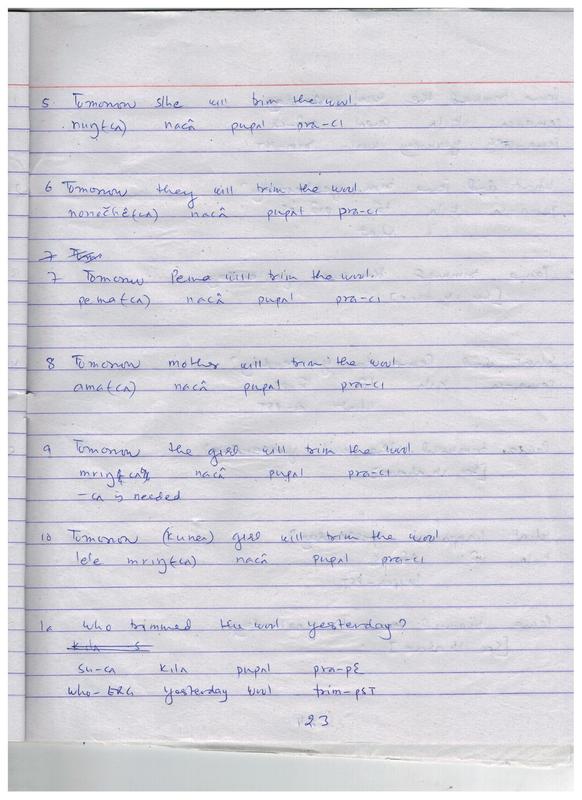 5 Tomorrow s/he will trim the wool.
nuŋ(ca) nacâ pupal pra-ci
6 Tomorrow they will trim the wool.
nacâ pupal pra-ci
7
7 Tomorrow Pema will trim the wool.
pema(ca) nacâ pupal pra-ci
8 Tomorrow mother will trim the wool
ama(ca) nacâ pupal pra-ci
9 Tomorrow the girl will trim the wool
mriŋ nacâ pupal pra-ci
-ca is needed
10 Tomorrow (Kunea) girl will trim the wool.
mriŋ(ca) nacâ pupal pra-ci
1a Who trimmed the wool yesterday?
kila s
su-ca kila pupal pra-pɛ
who-ERG yesterday wool trim-PST
23